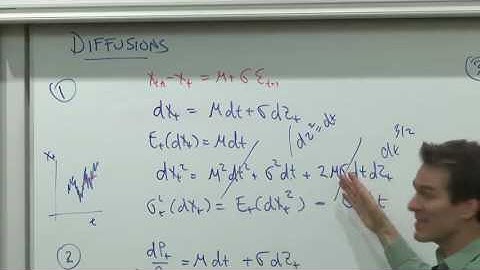 DIFFUSIONS
1
x_{t+1} - x_t = μ + σ ε_{t+1}
dx_t = μ dt + σ dz_t
E_t(dx_t) = μ dt
dz² = dt
dx_t² = μ² dt² + σ² dt + 2μσ dt dz_t
dt^{3/2}
σ_t²(dx_t) = E_t(dx_t²) -
x_t
t
2
dP_t = μ dt + σ dz_t